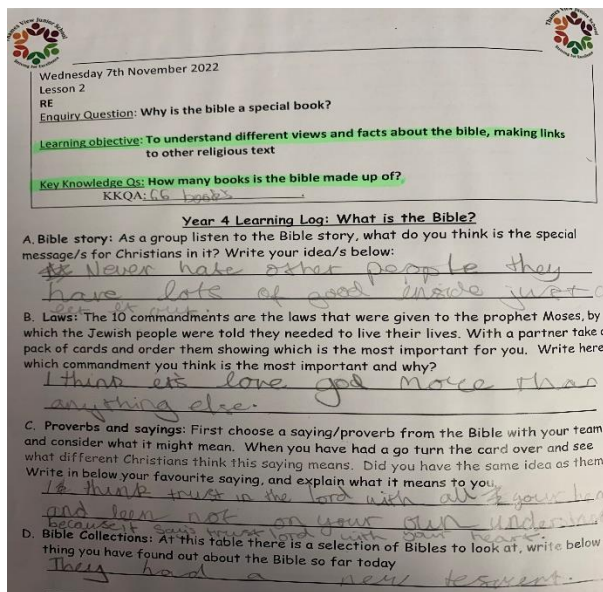 Thames View Junior School
Thames View Junior School
Wednesday 7th November 2022
Lesson 2
RE
Enquiry Question: Why is the bible a special book?
Learning objective: To understand different views and facts about the bible, making links
to other religious text
Key Knowledge Qs: How many books is the bible made up of?
KKQA: 66 books.
Year 4 Learning Log: What is the Bible?
A. Bible story: As a group listen to the Bible story, what do you think is the special
message/s for Christians in it? Write your idea/s below:
Never hate other people they
have lots of good inside just
let it out.
B. Laws: The 10 commandments are the laws that were given to the prophet Moses, by
which the Jewish people were told they needed to live their lives. With a partner take
pack of cards and order them showing which is the most important for you. Write here
which commandment you think is the most important and why?
I think it's love god more than
anything else.
C. Proverbs and sayings: First choose a saying/proverb from the Bible with your team
and consider what it might mean. When you have had a go turn the card over and see
what different Christians think this saying means. Did you have the same idea as them
Write in below your favourite saying, and explain what it means to you.
I think trust in the lord with all your
and leen not on your own
because it says trust lord with your heart.
D. Bible Collections: At this table there is a selection of Bibles to look at, write below
thing you have found out about the Bible so far today
They had a new